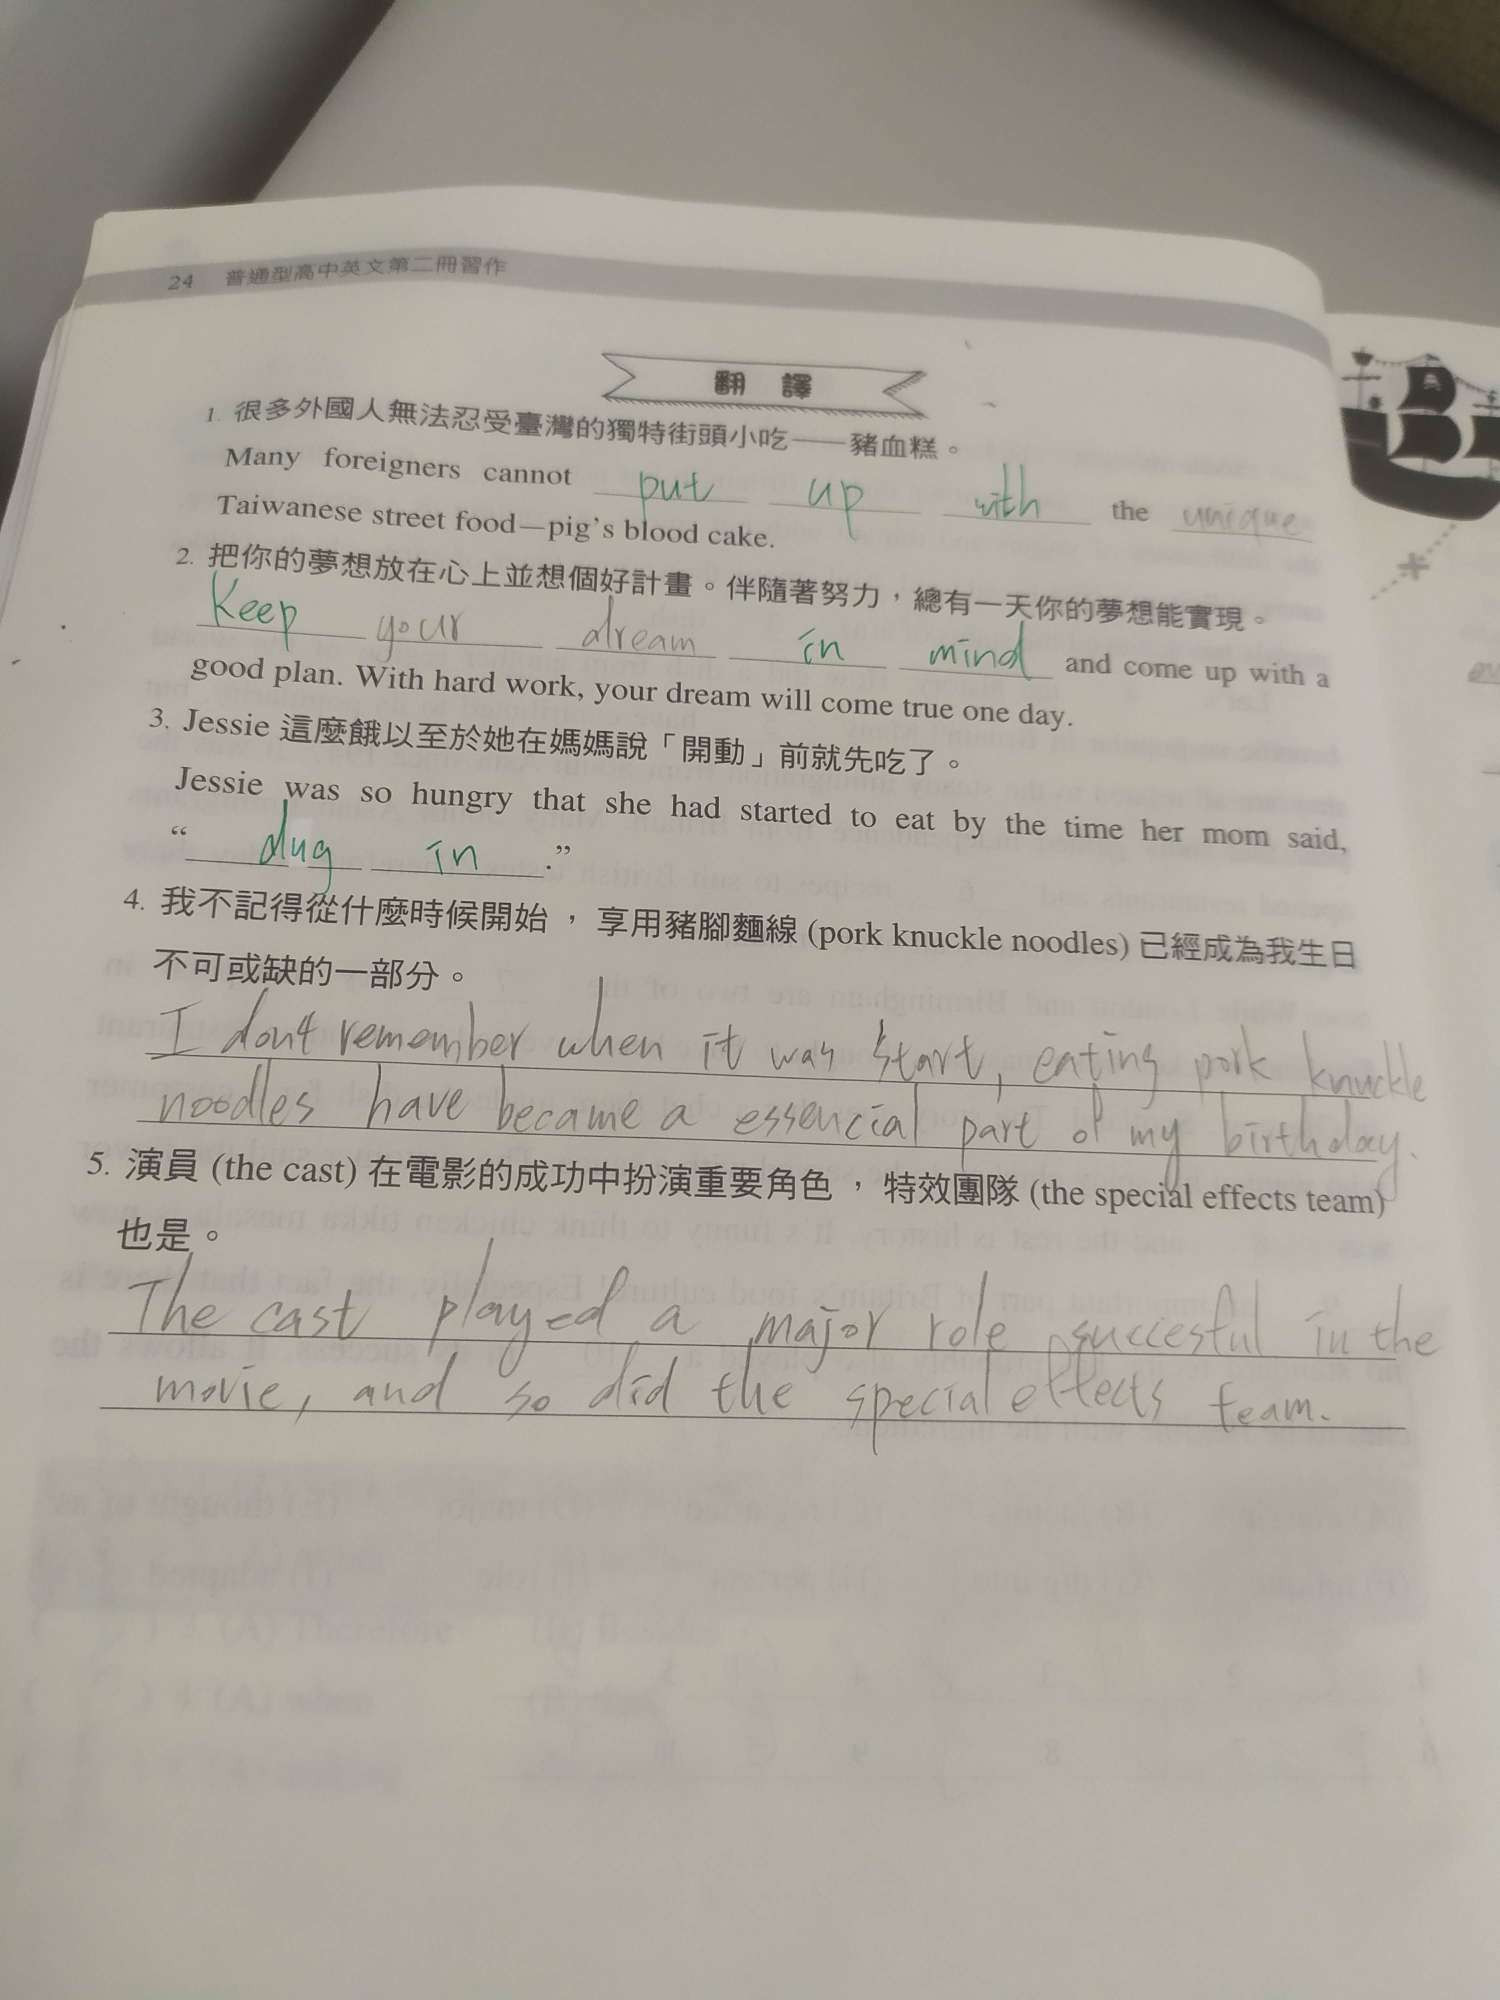 24 普通型高中英文第二冊習作
翻 譯
1. 很多外國人無法忍受臺灣的獨特街頭小吃——豬血糕。
Many foreigners cannot put up with the unique
Taiwanese street food—pig's blood cake.
2. 把你的夢想放在心上並想個好計畫。伴隨著努力，總有一天你的夢想能實現。
Keep your dream in mind and come up with a
good plan. With hard work, your dream will come true one day.
3. Jessie 這麼餓以至於她在媽媽說「開動」前就先吃了。
Jessie was so hungry that she had started to eat by the time her mom said,
“ dug in .”
4. 我不記得從什麼時候開始，享用豬腳麵線 (pork knuckle noodles) 已經成為我生日
不可或缺的一部分。
I don't remember when it was start, eating pork knuckle
noodles have became a essencial part of my birthday.
5. 演員 (the cast) 在電影的成功中扮演重要角色，特效團隊 (the special effects team)
也是。
The cast played a major role succesful in the
movie, and so did the special effects team.